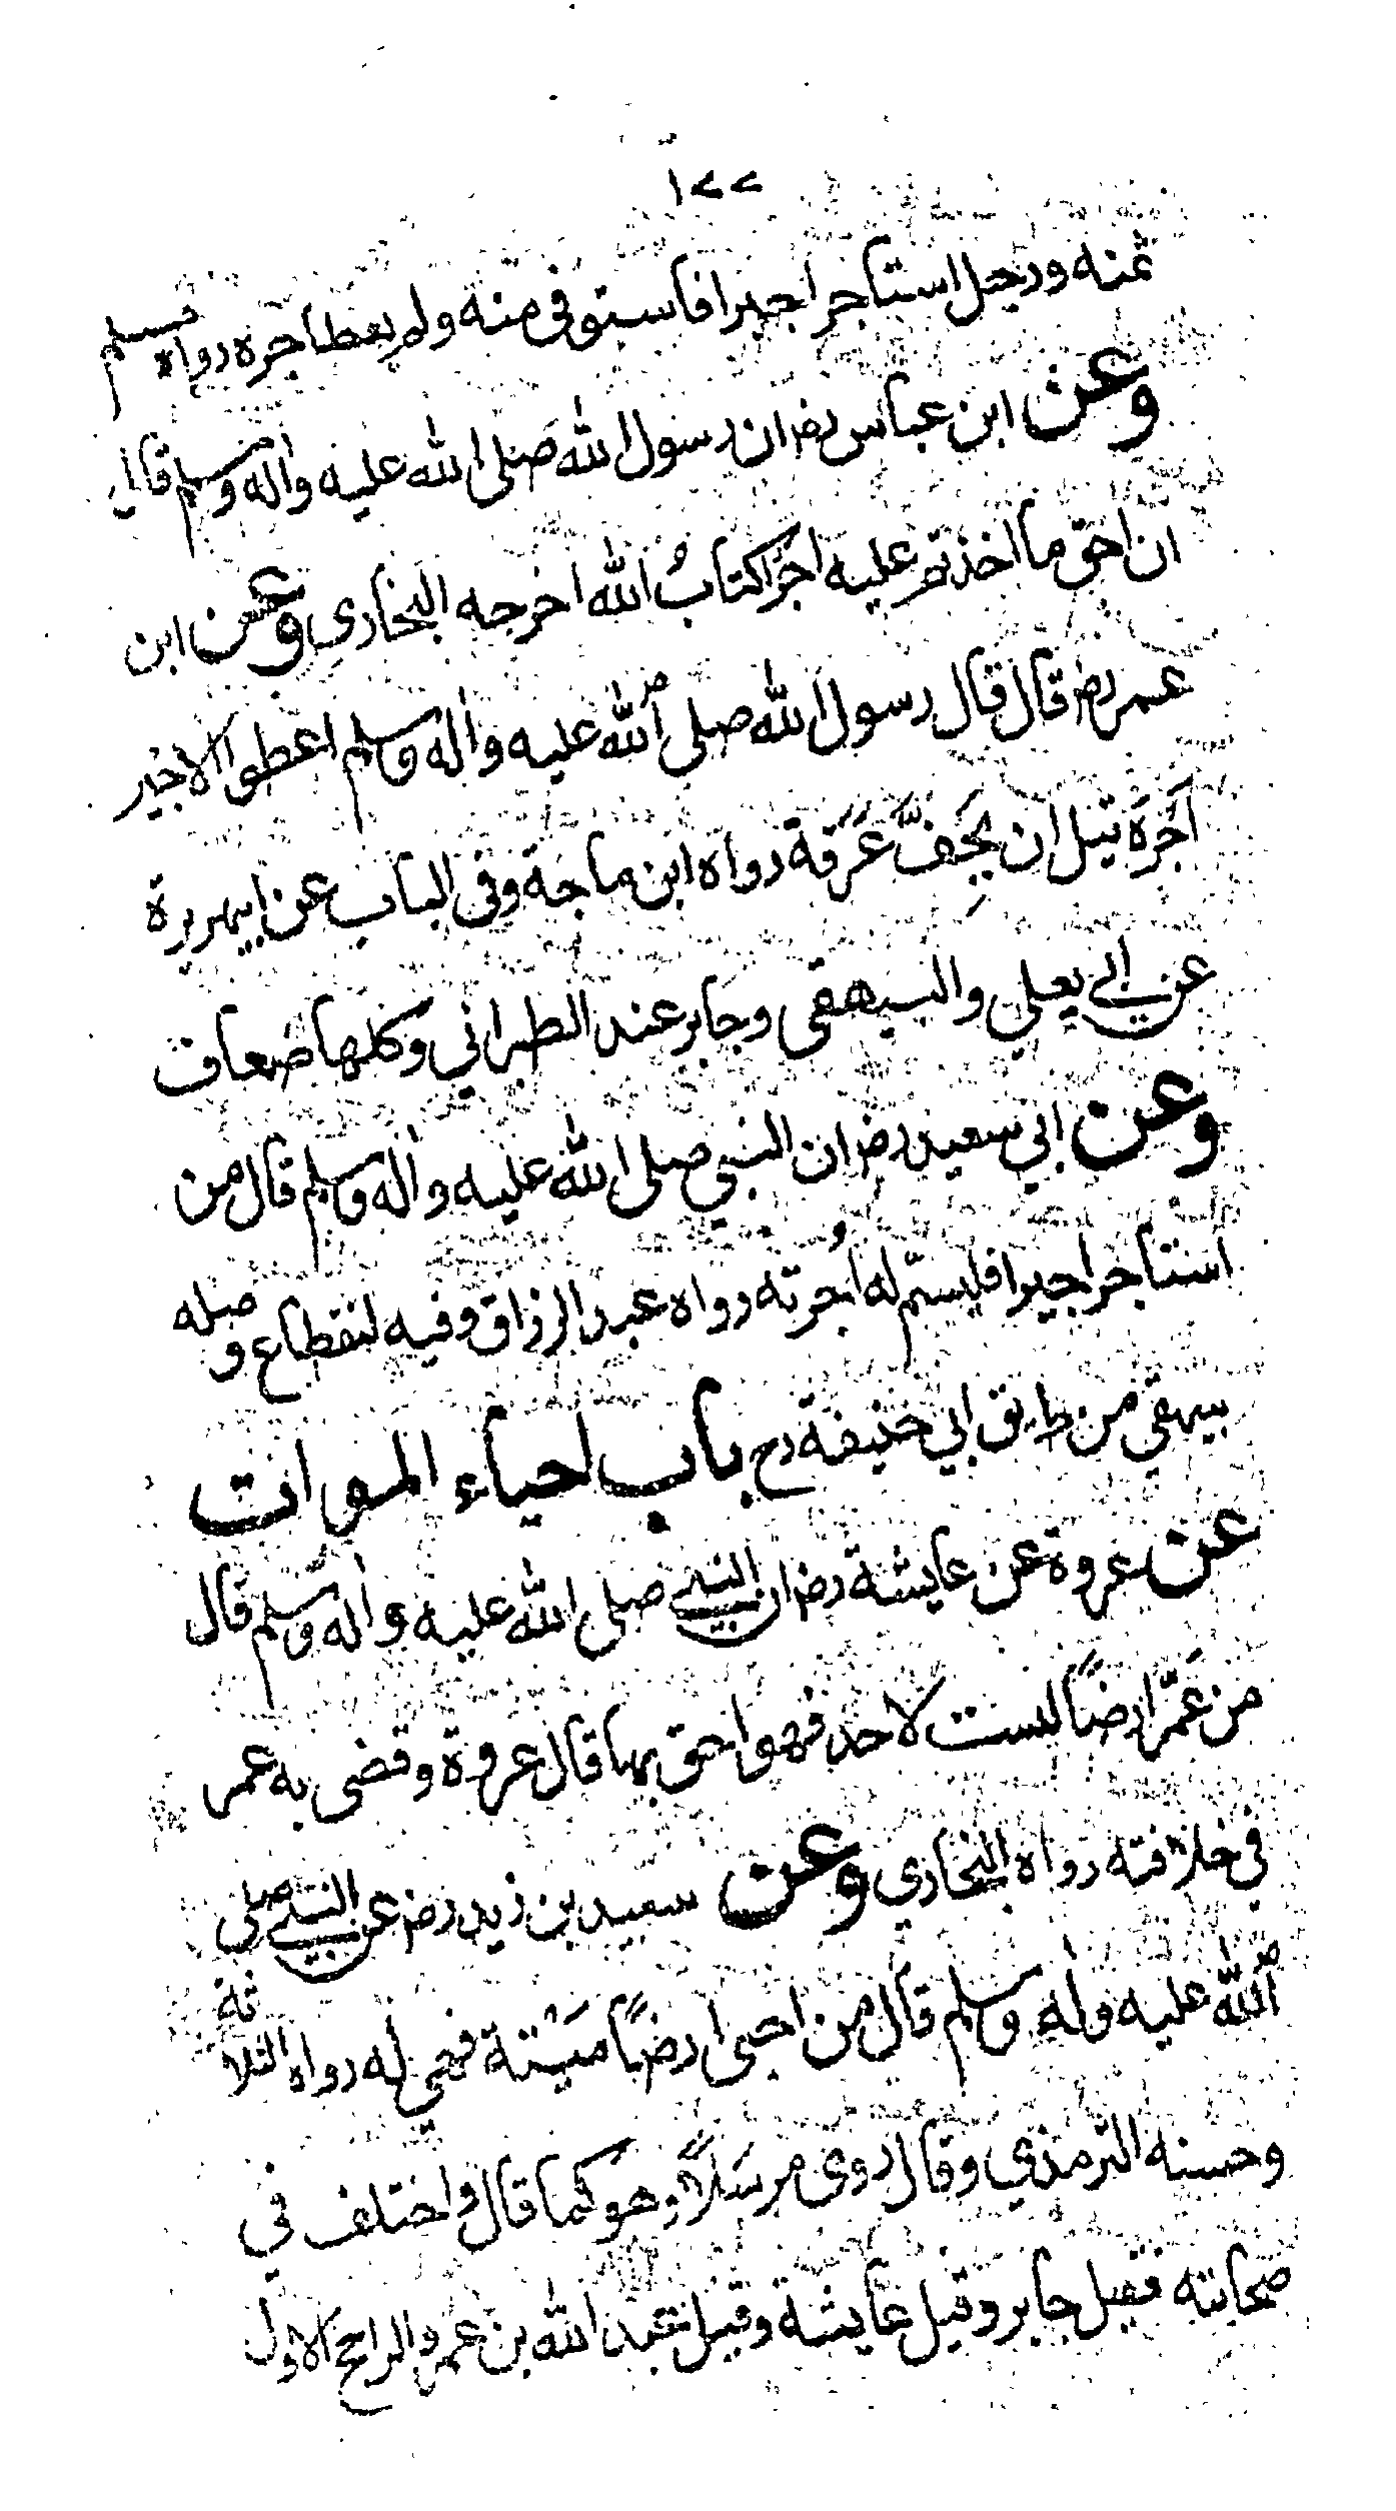 ١٢٢
ثمنه ورجل استاجر اجيرا فاستوفى منه ولم يعط اجره رواه مسلم
وعن ابن عباس رض ان رسول الله صلى الله عليه واله وسلم قال
ان احق ما اخذتم عليه اجرًا كتابُ الله اخرجه البخاري وعن ابن
عمر رض قال قال رسول الله صلى الله عليه واله وسلم اعطوا الاجير
اَجرَه قبل ان يَجِفَّ عَرَقة رواه ابن ماجة وفي الباب عن ابيهريرة
عن ابي يعلي والبيهقي وجابر عند الطبراني وكلها ضعاف
وعن ابي سعيد رض ان النبي صلى الله عليه واله وسلم قال من
استاجر اجيرا فليسمّ له اُجرته رواه عبد الرزاق وفيه انقطاع وصله
بيهقي من طريق ابي حنيفة رح باب احياء الموات
عن عروة عن عايشة رض ان النبي صلى الله عليه واله وسلم قال
من عَمّر ارضًا ليست لاحد فهو احق بها قال عروة وقضى به عمر
في خلافته رواه البخاري وعن سعيد بن زيد رض عن النبي صلى
الله عليه وله وسلم قال من احيى ارضًا ميْتة فهي له رواه الثلاثة
وحسنه الترمذي وقال روى مرسَلاً وهو كما قال واختلف في
صحابته فقيل جابر وقيل عايشة وقيل عبد الله بن عمر والراجح الاول